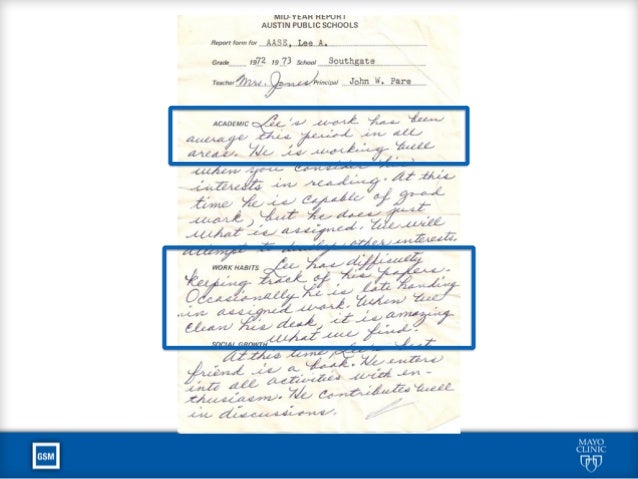 MID-YEAR REPORT
AUSTIN PUBLIC SCHOOLS
Report form for AASE, Lee A.
Grade 1972 1973 School Southgate
Teacher Mrs. Jones Principal John W. Pare
ACADEMIC Lee's work has been
average this period in all
areas. He is working well
when you consider his
interests in reading. At this
time he is capable of good
work, but he does just
what is assigned. We will
attempt to develop other interests.
WORK HABITS Lee has difficulty
keeping track of his papers.
Occasionally he is late handing
in assigned work. When we
clean his desk, it is amazing
what we find.
SOCIAL GROWTH
At this time Lee's best
friend is a book. He enters
into all activities with en-
thusiasm. He contributes well
in discussions.
GSM
MAYO
CLINIC